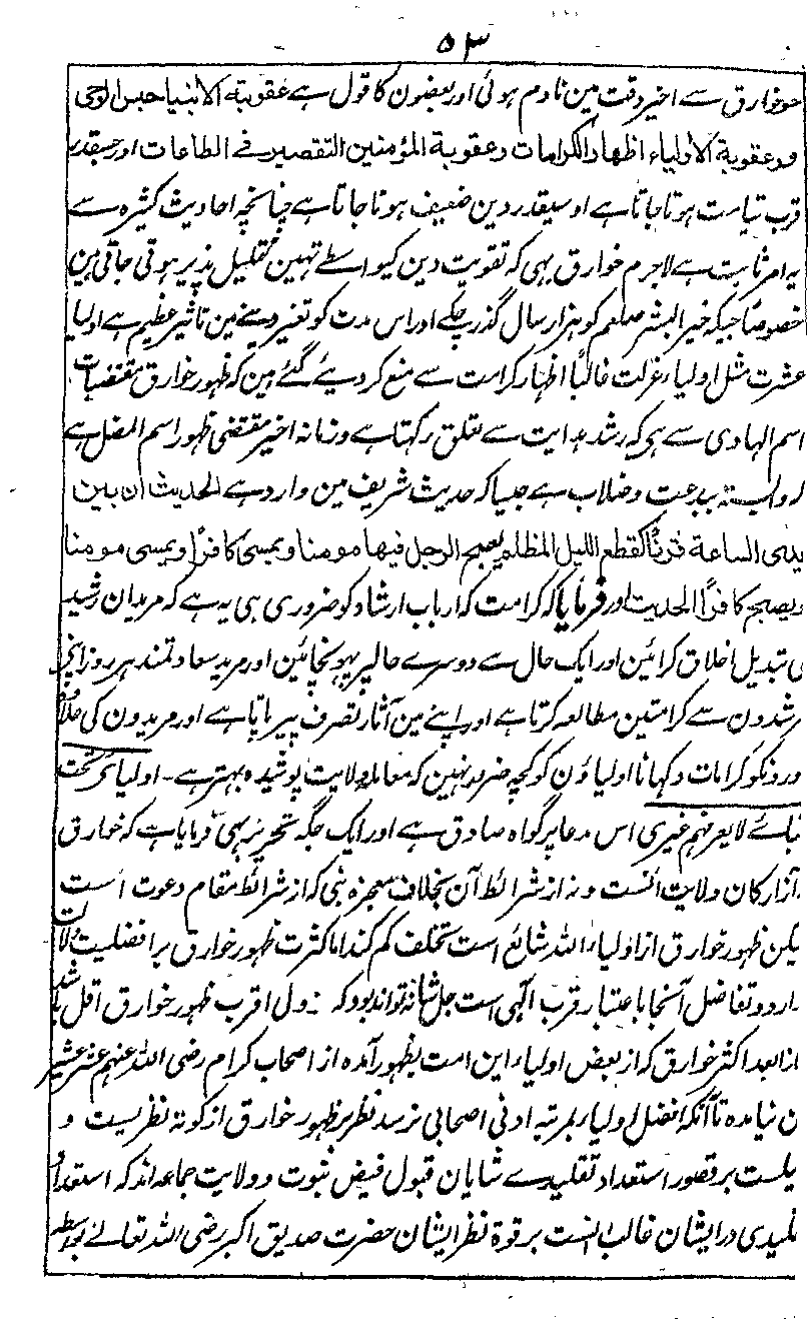 ۵۳
خوارق سے اخیر وقت مین نادم ہوئی اور بعضون کا قول ہے عقوبة الانبیا حبس الوحی
وعقوبة الاولیاء اظهار الکرامات وعقوبة المؤمنین التقصیر فے الطاعات اور جسقدر
قرب قیامت ہوتا جاتا ہے اوسیقدر دین ضعیف ہوتا جاتا ہے چنانچہ احادیث کثیرہ سے
یہ امر ثابت ہے لاجرم خوارق بہی کہ تقویت دین کیواسطے تہین تقلیل پذیر ہوتی جاتی ہین
خصوصًا جبکہ خیر البشر صلعم کو ہزار سال گذر چکے اور اس مدت کو تغیر دینے مین تاثیر عظیم ہے اولیا
عشرت مثل اولیاء عزلت غالبًا اظہار کرامت سے منع کر دیے گئے ہین کہ ظہور خوارق مقتضیات
اسم الہادی سے ہی کہ رشد ہدایت سے تعلق رکہتا ہے وزمانہ اخیر مقتضی ظہور اسم المضل ہے
وابستہ ببدعت وضلالت ہے جیسا کہ حدیث شریف مین وارد ہے الحدیث ان بین
یدی الساعة فتنًا کقطع اللیل المظلم یصبح الرجل فیها مومنا ویمسی کافرًا ویمسی مومنا
ویصبح کافرًا الحدیث اور فرمایا کہ کرامت کہ ارباب ارشاد کو ضروری ہی یہ ہے کہ مریدان رشید
کی تبدیل اخلاق کرائین اور ایک حال سے دوسرے حال پر پہونچائین اور مرید سعادتمند ہر روز اپنے
مرشدون سے کرامتین مطالعہ کرتا ہے اور اپنے مین آثار تصرف پیر پاتا ہے اور مریدون کی علاوہ
اورونکو کرامات دکہانا اولیاؤن کو کچہ ضرور نہین کہ معاملہ ولایت پوشیدہ بہتر ہے۔ اولیائی تحت
قبائے لایعرفہم غیری اس مدعا پر گواہ صادق ہے اور ایک جگہ تحریر بہی فرمایا ہے کہ خوارق
نہ از ارکان ولایت است ونہ از شرائط آن بخلاف معجزہ نبی کہ از شرائط مقام دعوت است
لیکن ظہور خوارق از اولیاء اللہ شائع است تخلف کم کند اما کثرت ظہور خوارق بر افضلیت دلالت
ندارد وتفاضل آنجا باعتبار قرب الہی است جل شانہ تواند بود کہ از ولی اقرب ظہور خوارق اقل باشد
از ابعد اکثر خوارق کہ از بعض اولیاء این امت بظہور آمدہ از اصحاب کرام رضی اللہ عنہم عشر عشیر
آن نیامدہ تا آنکہ افضل اولیاء بمرتبہ ادنی اصحابی نرسد نظر بر ظہور خوارق از کوتہ نظریست و
دلیلست بر قصور استعداد تقلیدے شایان قبول فیض نبوت وولایت جماعہ اند کہ استعداد
تقلیدی در ایشان غالب است بر قوۃ نظر ایشان حضرت صدیق اکبر رضی اللہ تعالے بواسطہ